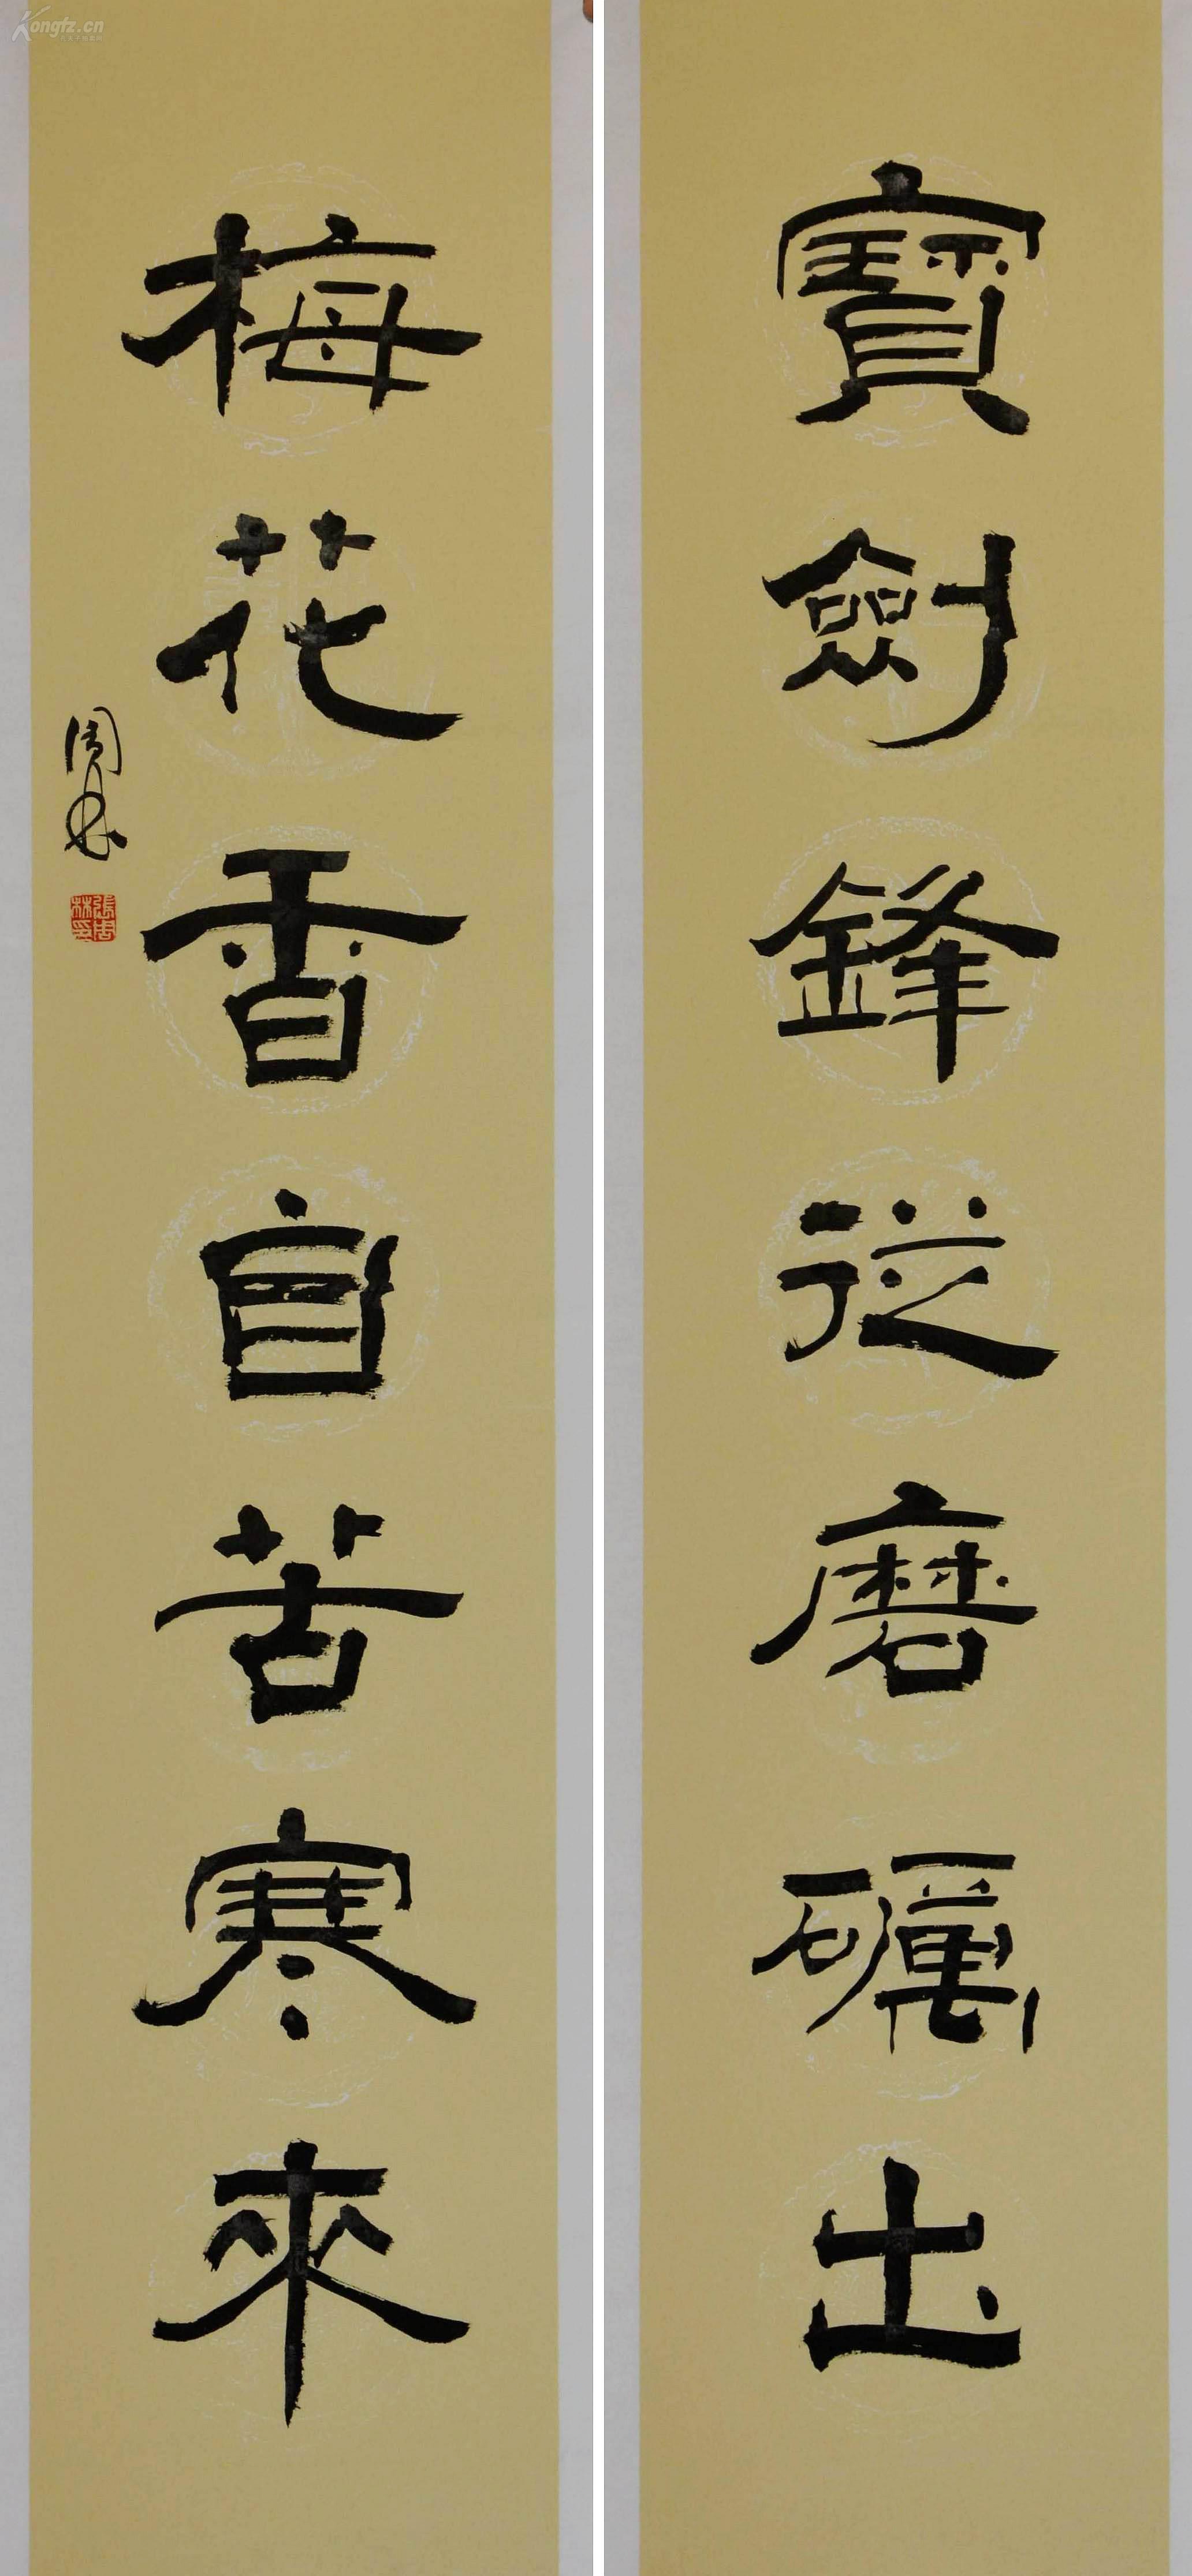 寶劍鋒從磨礪出
梅花香自苦寒來
周林
張周林印
Kongfz.cn